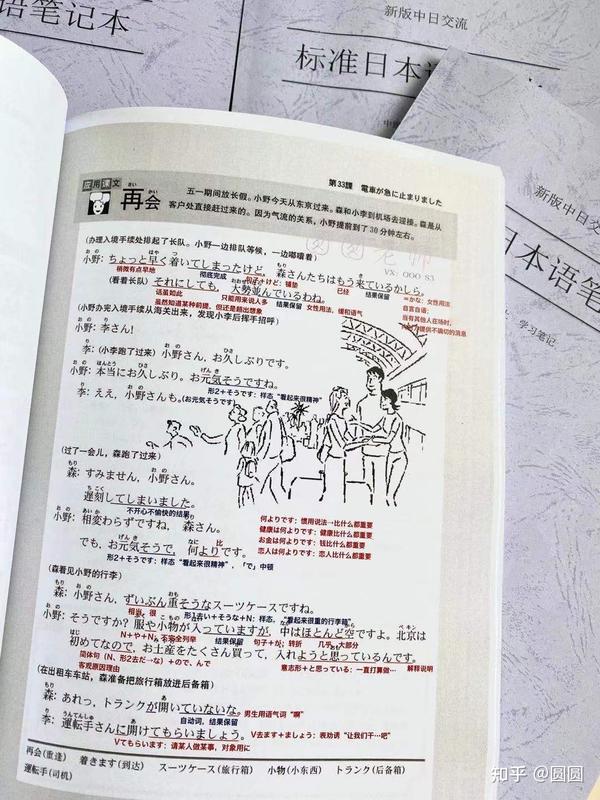 语笔记本
新版中日交流
标准日本语
新版中日交流
日本语笔
学习笔记
第33課 電車が急に止まりました
应用课文
さい かい
再会
五一期间放长假。小野今天从东京过来。森和小李到机场去迎接。森是从
客户处直接赶过来的。因为气流的关系，小野提前到了30分钟左右。
VX: OOO S3
(办理入境手续处排起了长队。小野一边排队等候，一边嘟囔着)
小野: ちょっと早く着いてしまったけど、森さんたちはもう来ているかしら。
稍微有点早地 彻底完成 句子＋けど：铺垫 已经 结果保留 =かな：女性用法
(看着长队) それにしても、大勢並んでいるわね。
自言自语；
话虽如此 只能用来说人多 结果保留 女性用法，缓和语气
当有其他人在场时，
虽然知道某种前提，但还是超出想象
(小野办完入境手续从海关出来，发现小李后挥手招呼)
小野: 李さん!
李: (小李跑了过来) 小野さん、お久しぶりです。
小野: 本当にお久しぶり。お元気そうですね。
形2＋そうです：样态“看起来很精神”
李: ええ，小野さんも。(お元気そうです)
(过了一会儿，森跑了过来)
森: すみません，小野さん。
遅刻してしまいました。
不开心不愉快的结果
小野: 相変わらずですね，森さん。
でも，お元気そうで，何よりです。
形2＋そうです：样态“看起来很精神”，「で」中顿
何よりです：惯用说法→比什么都重要
健康は何よりです：健康比什么都重要
お金は何よりです：钱比什么都重要
恋人は何よりです：恋人比什么都重要
(森看见小野的行李)
森: 小野さん，ずいぶん重そうなスーツケースですね。
相当，很 形1去い＋そうな＋N：样态，“看起来很重的行李箱”
小野: そうですか? 服や小物が入っていますが，中はほとんど空ですよ。北京は
N＋や＋N：不完全列举 结果保留 句子＋が；转折 几乎，大部分
初めてなので，お土産をたくさん買って，入れようと思っているんです。
简体句（N、形2去だ→な）＋ので、んで 意志形＋と思っている：一直打算做… 解释说明
客观原因理由
(在出租车车站，森准备把旅行箱放进后备箱)
森: あれっ，トランクが開いていないな。 男生用语气词“啊”
自动词，结果保留
李: 運転手さんに開けてもらいましょう。 V去ます＋ましょう：表劝诱“让我们干…吧”
Vてもらいます：请某人做某事，对象用に
再会(重逢) 着きます(到达) スーツケース(旅行箱) 小物(小东西) トランク(后备箱)
運転手(司机)
知乎 @圆圆